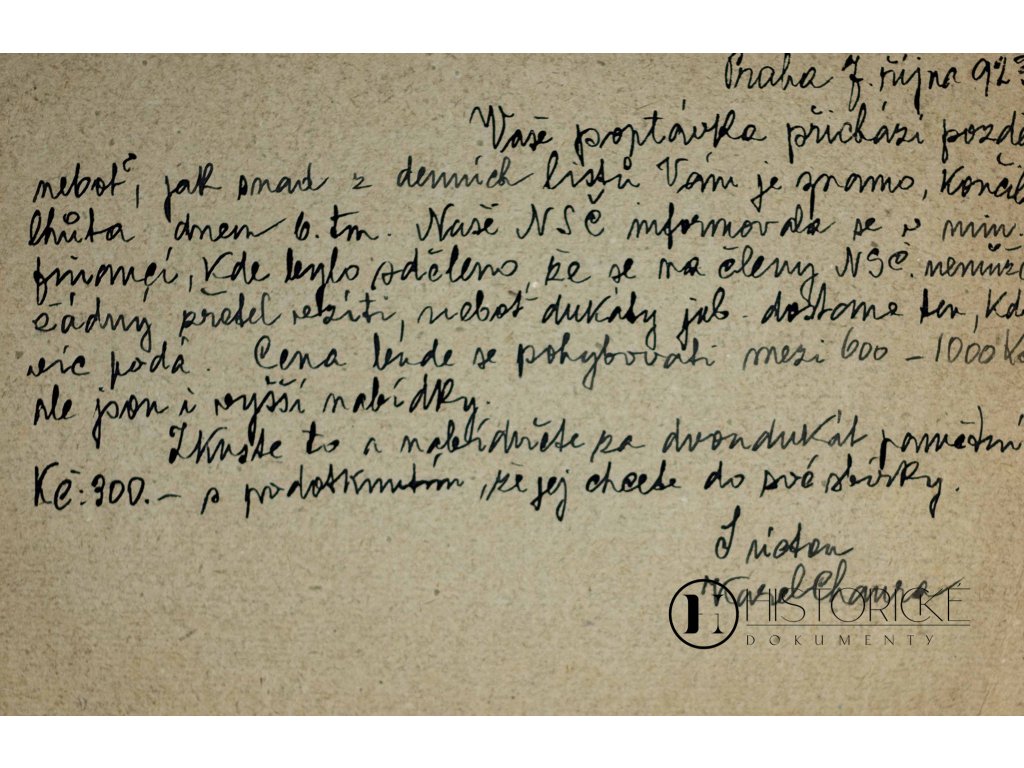 Praha 7. října 923
Vaše poptávka přichází pozdě
neboť, jak snad z denních listů Vám je známo, končil
lhůta dnem 6. tm. Naše NSČ informovala se v min.
financí, kde bylo sděleno, že se na členy NSČ. nemůže
žádný zřetel vzíti, neboť dukáty jub. dostane ten, kdo
víc podá. Cena bude se pohybovati mezi 600 – 1000 Kč
ale jsou i vyšší nabídky.
Zkuste to a nabídněte za dvoudukát pamětní
Kč: 300.– s podotknutím, že jej chcete do své sbírky.
S úctou
Karel Chaura
HISTORICKÉ
DOKUMENTY